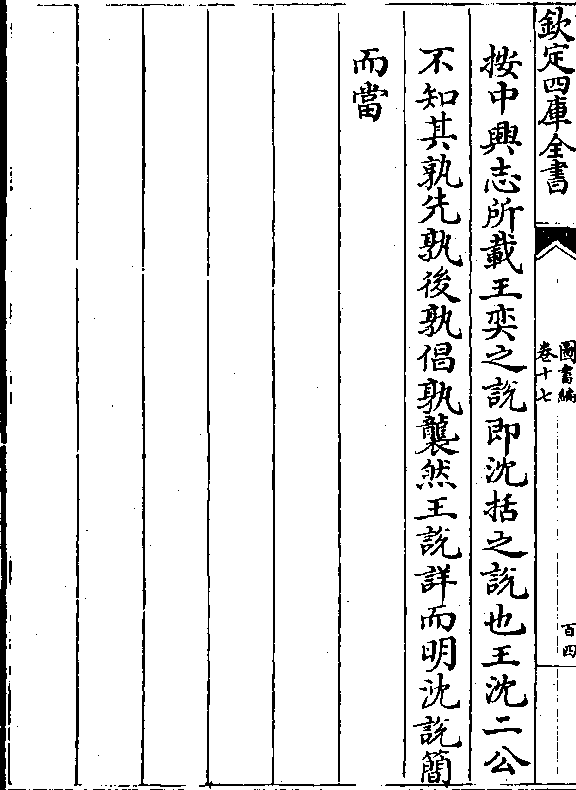 欽定四庫全書
圖書編
卷十七
百四
按中興志所載王奕之說即沈括之說也王沈二公
不知其孰先孰後孰倡孰襲然王說詳而明沈說簡
而當